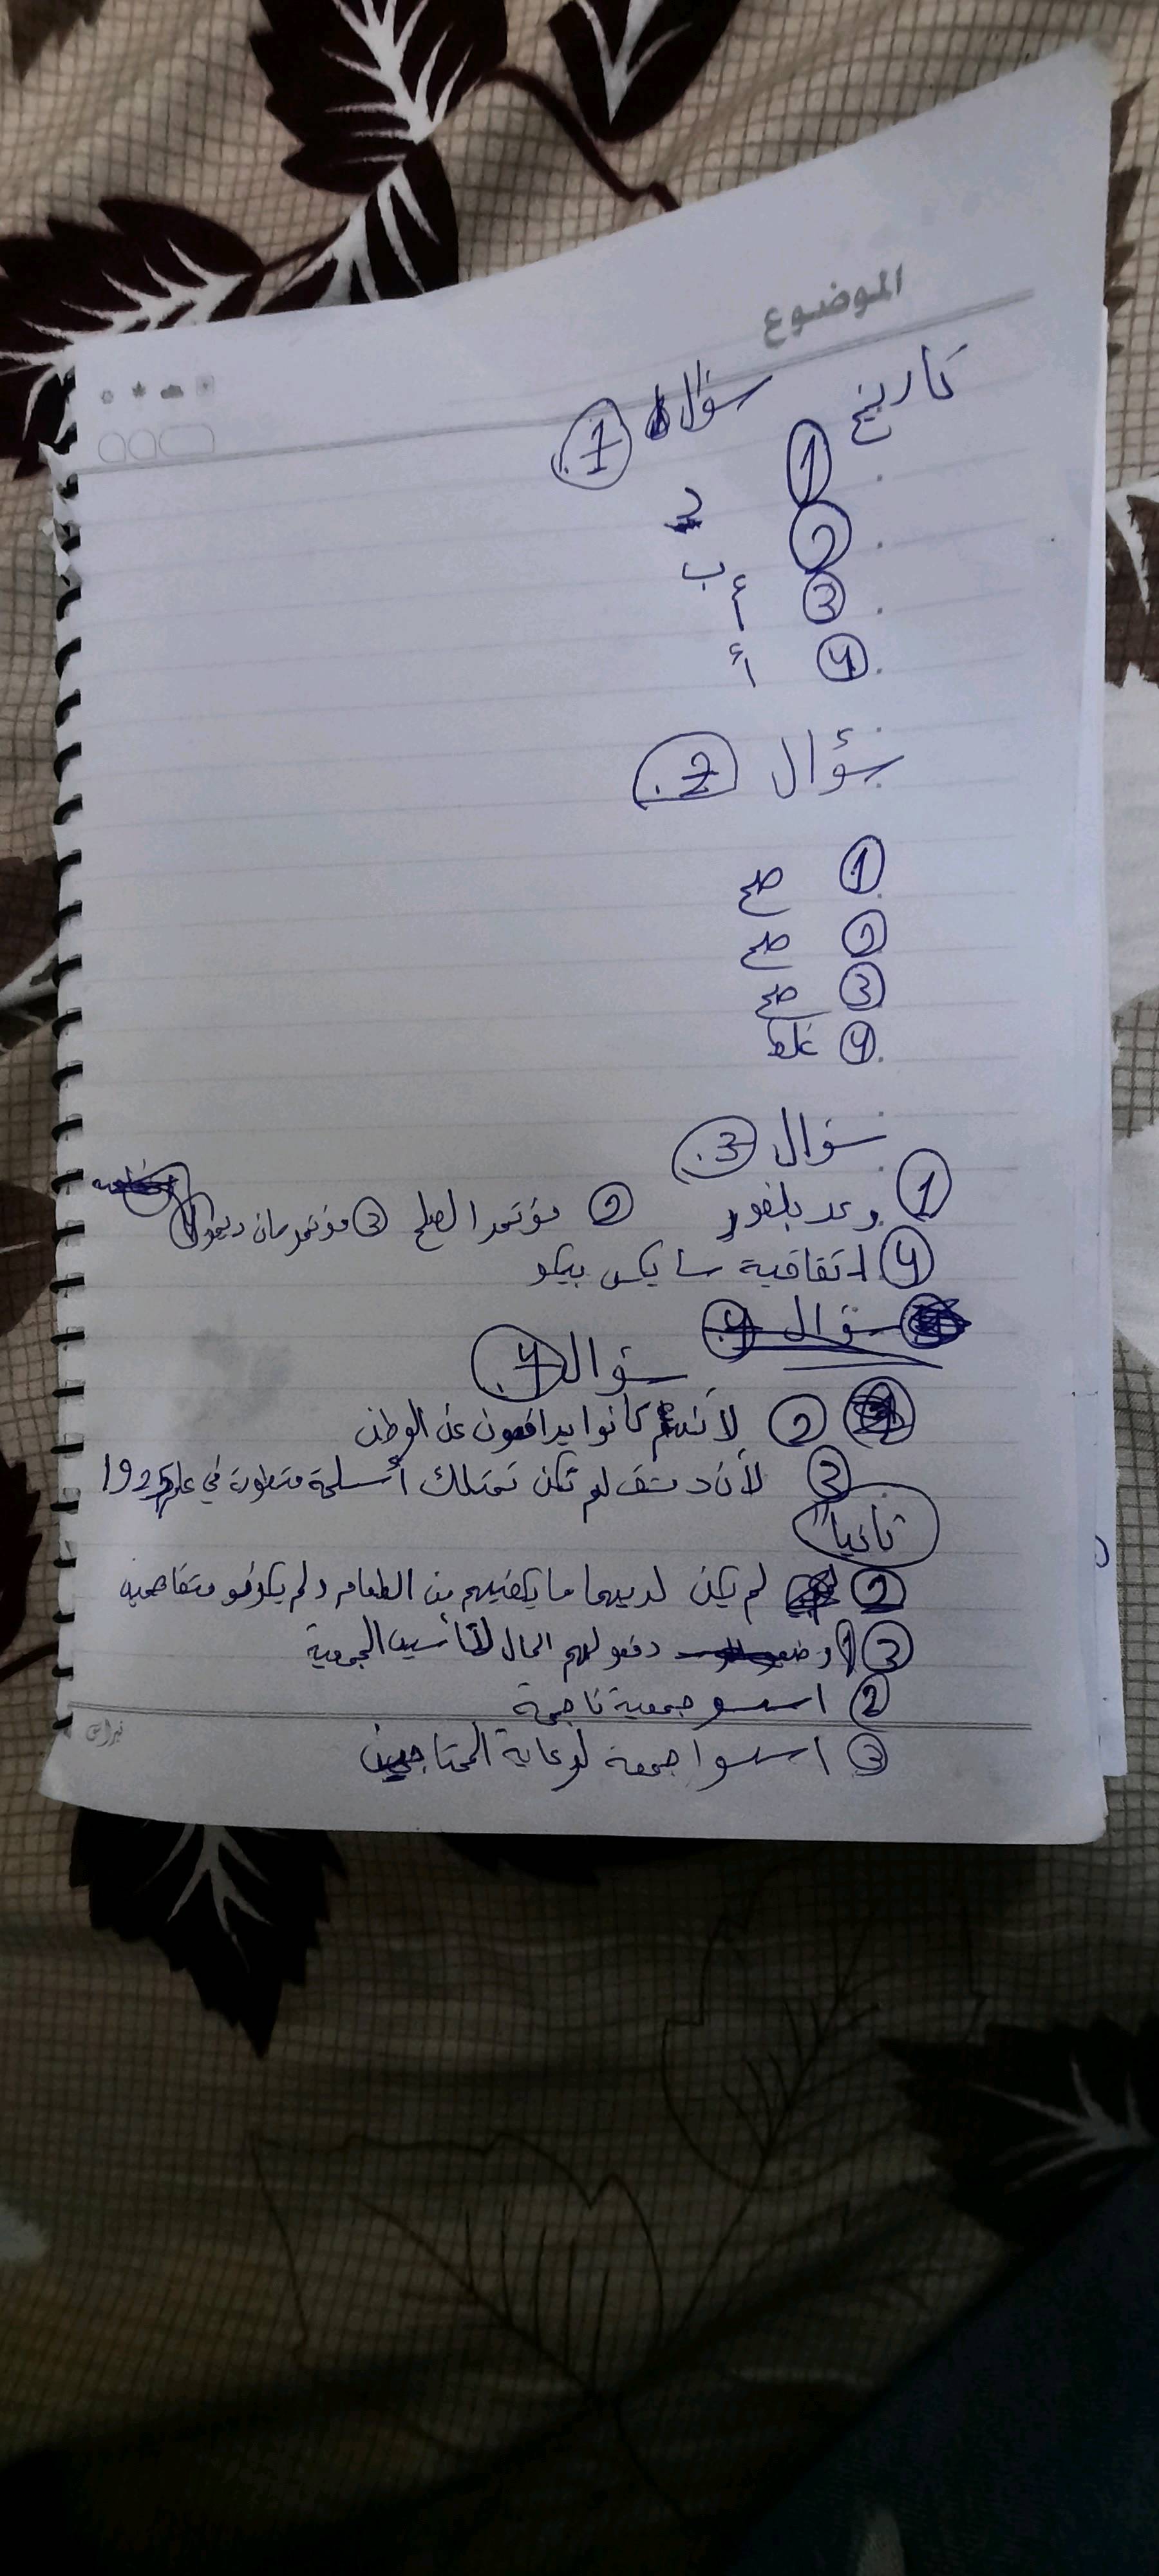 الموضوع
تاريخ سؤال 1.
1 د
2 ب
3 أ
4 أ
سؤال 2.
1 صح
2 صح
3 صح
4 غلط
سؤال 3.
1 وعد بلفور 2 مؤتمر الصلح 3 مؤتمر سان ريمو
4 اتفاقية سايكس بيكو
سؤال 4.
سؤال 4.
2 لأنهم كانوا يدافعون عن الوطن
3 لأن دمشق لم تكن تمتلك أسلحة متطورة في عام 1925
ثانياً
2 لم يكن لديهما ما يكفيهم من الطعام ولم يكونو متفاهمين
3 1 دفعو لهم المال لتأسيس الجمعية
2 اسسو جمعية ناجحة
3 اسسوا جمعة لرعاية المحتاجين
نبراس